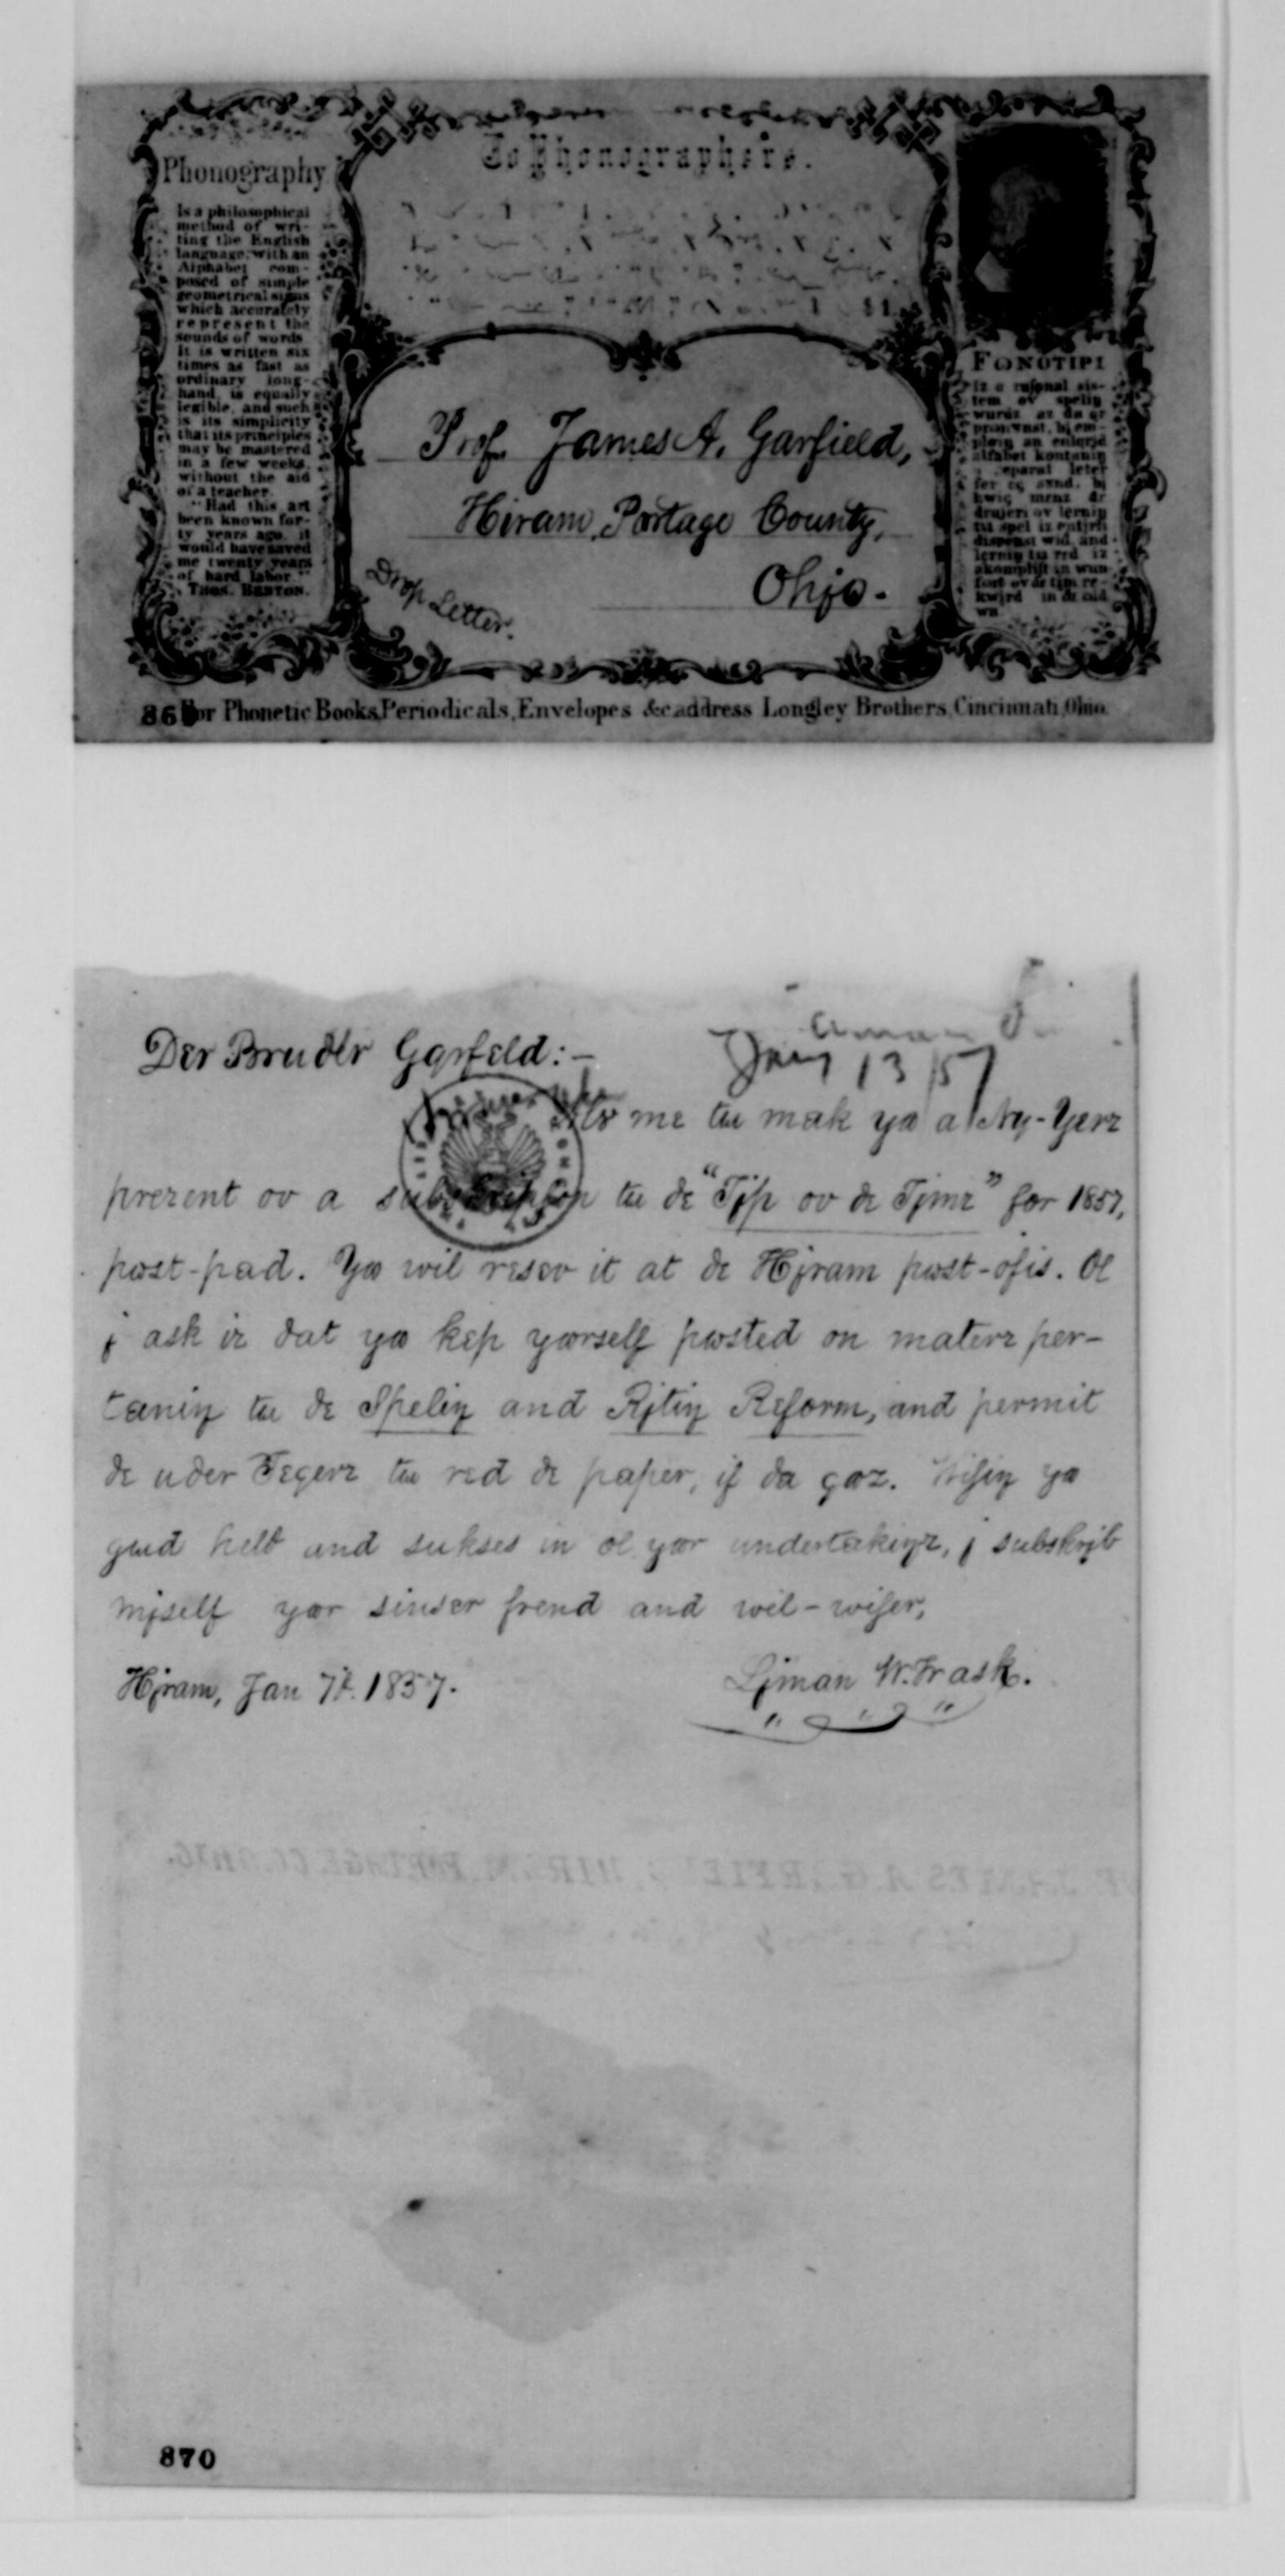 To Phonographers.
Phonography
Is a philosophical
method of wri-
ting the English
language, with an
Alphabet com-
posed of simple
geometrical signs
which accurately
represent the
sounds of words
It is written six
times as fast as
ordinary long-
hand, is equally
legible, and such
is its simplicity
that its principles
may be mastered
in a few weeks,
without the aid
of a teacher.
"Had this art
been known for-
ty years ago, it
would have saved
me twenty years
of hard labor."
Thos. Benton.
Prof. James A. Garfield,
Hiram, Portage County,
Ohjo.
Drop Letter.
FONOTIPI
iz a raʃonal sis-
tem ov speliŋ
wurdz az da ar
alfabet kontaniŋ
separat leter
fer eɕ snd. bj
hwiɕ menz de
ov lerniŋ
tu spel iz entjrli
dispenst wid, and
lerniŋ tu red iz
akompliʃt in wun
fort ov de tjm re-
kwjrd in de old
wa
86 For Phonetic Books, Periodicals, Envelopes &c address Longley Brothers, Cincinnati, Ohio.
Jany 13/57
Der Bruder Garfeld:—
me tu mak yɯ a Ny-Yerz
prezent ov a subskripʃon tu de "Tjp ov de Tjmz" for 1857,
post-pad. Yɯ wil resev it at de Hjram post-ofis. Ol
j ask iz dat yɯ kep yɯrself posted on materz per-
taniŋ tu de Speliŋ and Rjtiŋ Reform, and permit
de uder Teɕerz tu red de paper, if da ɕoz. Wiʃiŋ yɯ
gud helt and sukses in ol yɯr undertakiŋz, j subskrjb
mjself yɯr sinser frend and wel-wiʃer,
Hjram, Jan 7t. 1857.
Ljman W. Trask.
870